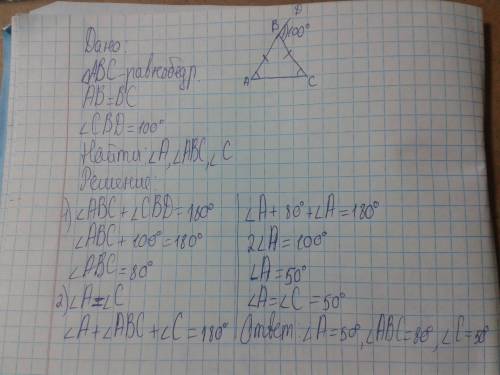 Дано:
△ABC-равнобедр.
AB=BC
∠CBD=100°
Найти:∠A,∠ABC,∠C
Решение:
1)∠ABC+∠CBD=180°
∠ABC+100°=180°
∠ABC=80°
2)∠A=∠C
∠A+∠ABC+∠C=180°
∠A+80°+∠A=180°
2∠A=100°
∠A=50°
∠A=∠C=50°
Ответ:∠A=50°,∠ABC=80°,∠C=50°
D
B
100°
A
C